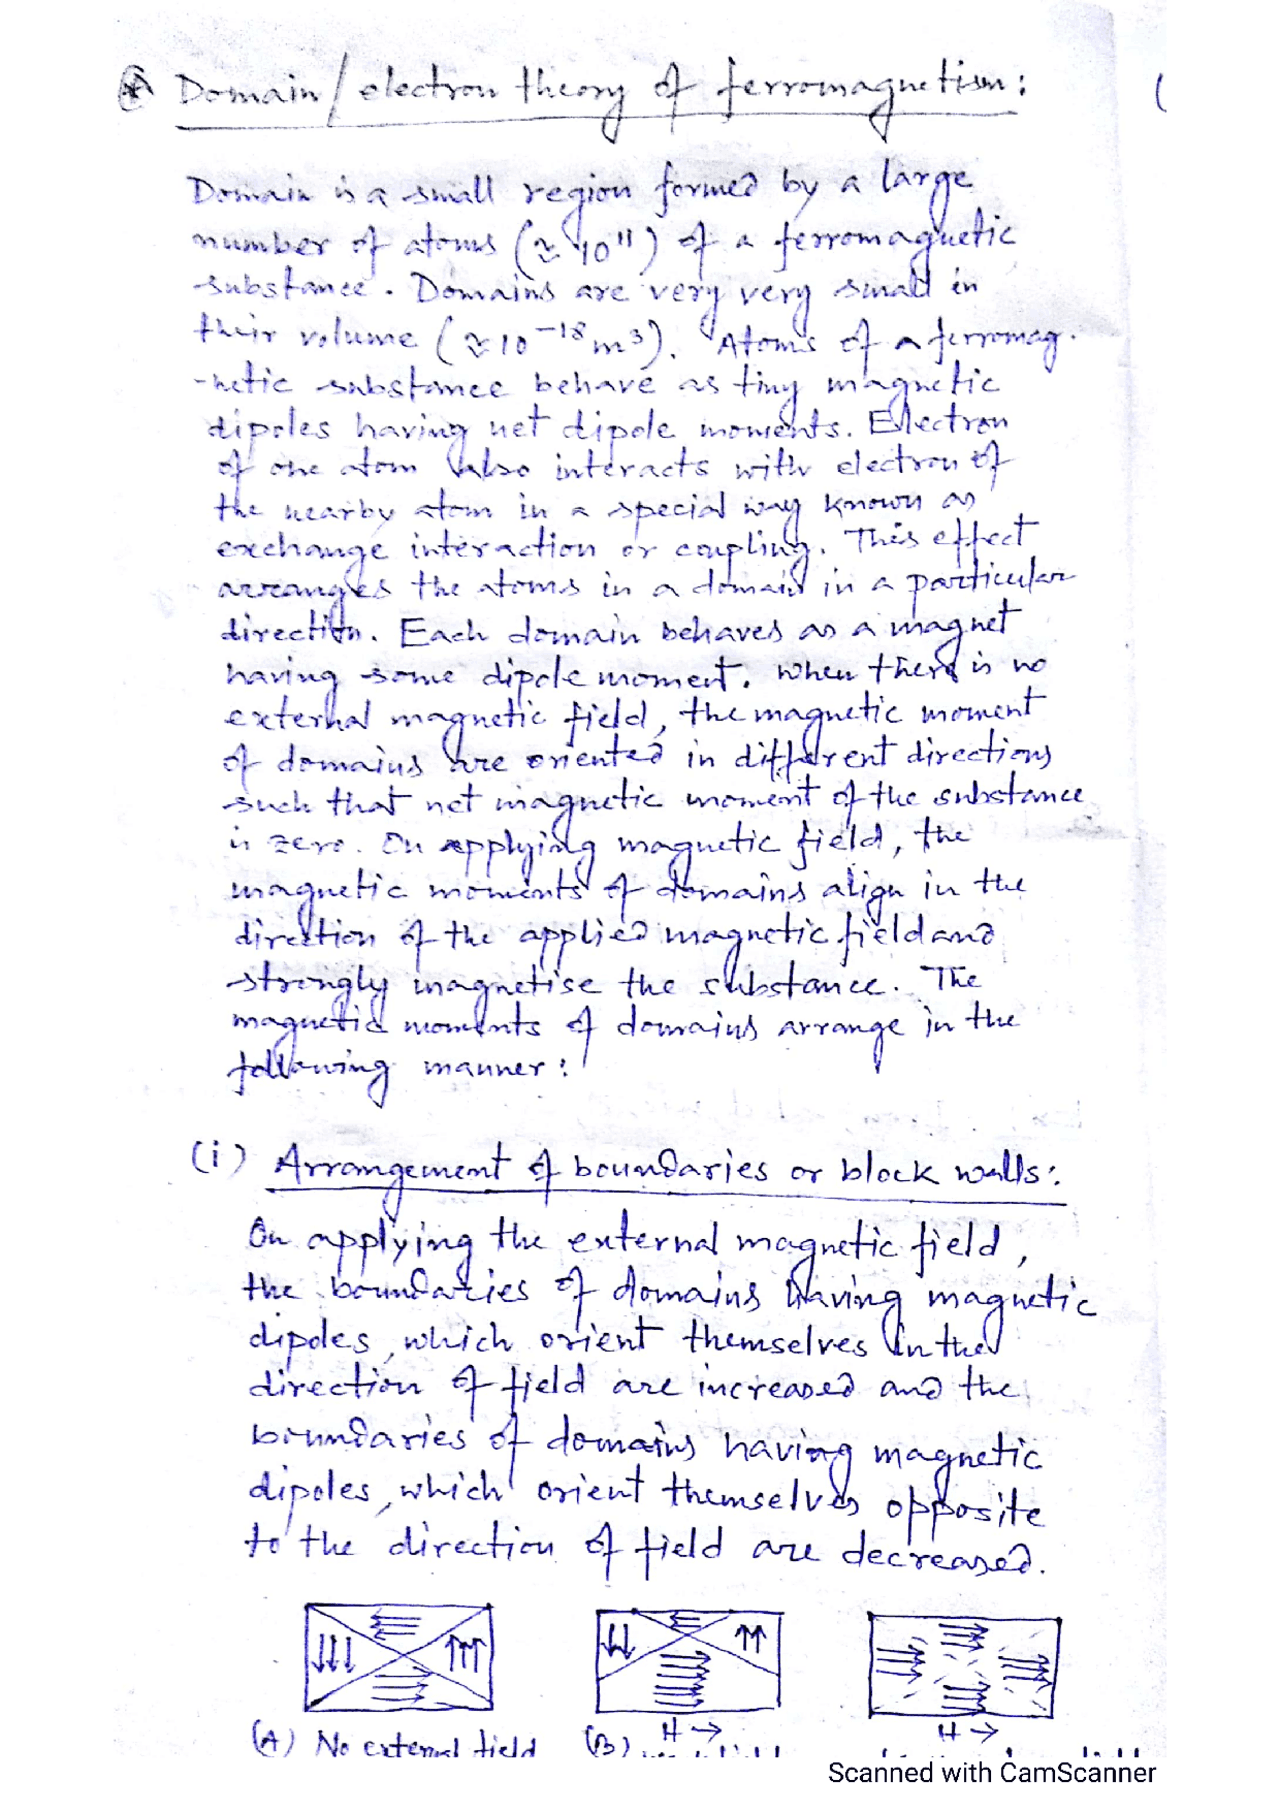 Domain/electron theory of ferromagnetism:
Domain is a small region formed by a large
number of atoms (≈ 10¹¹) of a ferromagnetic
substance. Domains are very very small in
their volume (≈ 10⁻¹⁸ m³). Atoms of a ferromag-
-netic substance behave as tiny magnetic
dipoles having net dipole moments. Electron
of one atom also interacts with electron of
the nearby atom in a special way known as
exchange interaction or coupling. This effect
arranges the atoms in a domain in a particular
direction. Each domain behaves as a magnet
having some dipole moment. When there is no
external magnetic field, the magnetic moment
of domains are oriented in different directions
such that net magnetic moment of the substance
is zero. On applying magnetic field, the
magnetic moments of domains align in the
direction of the applied magnetic field and
strongly magnetise the substance. The
magnetic moments of domains arrange in the
following manner:
(i) Arrangement of boundaries or block walls:
On applying the external magnetic field,
the boundaries of domains having magnetic
dipoles, which orient themselves in the
direction of field are increased and the
boundaries of domains having magnetic
dipoles, which orient themselves opposite
to the direction of field are decreased.
H → H →
(A) No external field (B)
Scanned with CamScanner